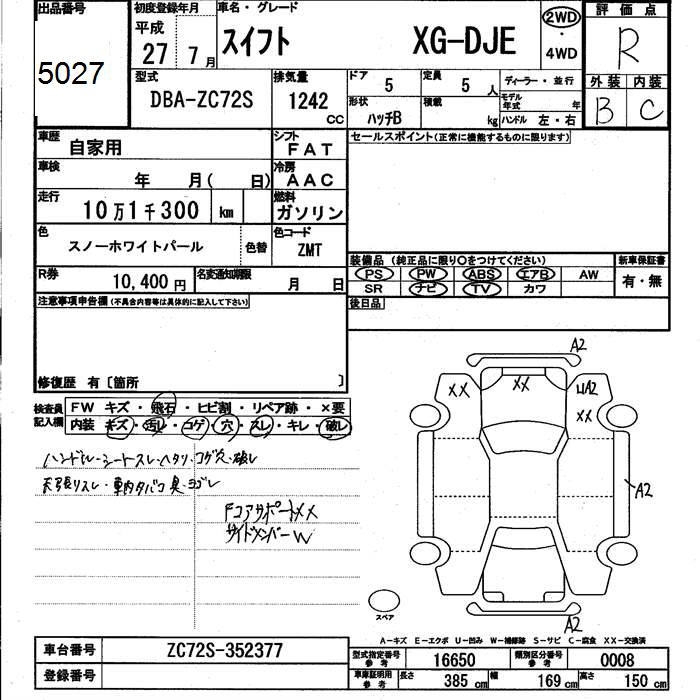 出品番号 初度登録年月 車名・グレード 評価点
5027 平成 27 7月 スイフト XG-DJE 2WD・4WD R
型式 排気量 ドア 定員 ディーラー・並行 外装 内装
DBA-ZC72S 1242 CC 5 5人 モデル年式 年 B C
形状 ハッチB 積載 kg ハンドル 左・右
車歴 自家用 シフト FAT セールスポイント(正常に機能するものに限ります)
車検 年 月( 日) 冷房 AAC
走行 10万1千300 km 燃料 ガソリン
色 スノーホワイトパール 色替 色コード ZMT
R券 10,400円 名変通知期限 月 日
装備品 (純正品に限り○をつけてください) 新車保証書
PS PW ABS エアB AW 有・無
SR ナビ TV カワ
注意事項申告欄(不具合内容等は具体的に記入して下さい) 後日品
修復歴 有〔箇所 〕
検査員記入欄 FW キズ・飛石・ヒビ割・リペア跡・×要
内装 キズ・汚レ・コゲ・穴・スレ・キレ・破レ
ハンドル・シートスレ・ヘタリ・コゲ穴・破レ
天張りスレ・車内タバコ臭・ヨゴレ
Fコアサポート××
サイドメンバーW
A2
A2
XX XX UA2
XX
A2
A2
スペア
A-キズ E-エクボ U-凹み W-補修跡 S-サビ C-腐食 XX-交換済
車台番号 ZC72S-352377 型式指定番号 参考 16650 類別区分番号 参考 0008
登録番号 車庫証明用 参考 長さ 385 cm 幅 169 cm 高さ 150 cm